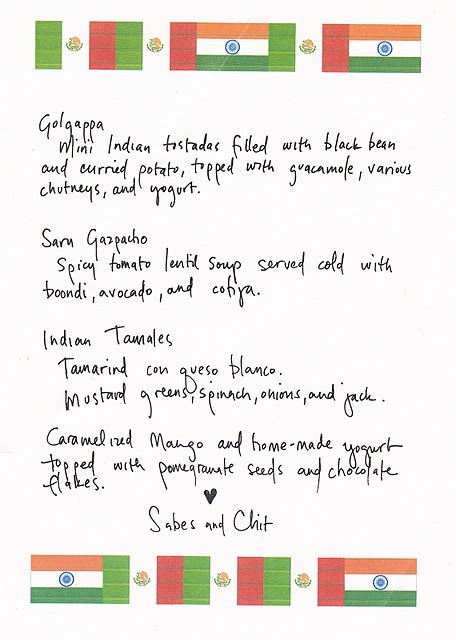 Golgappa
Mini Indian tostadas filled with black bean
and curried potato, topped with guacamole, various
chutneys, and yogurt.
Saru Gazpacho
Spicy tomato lentil soup served cold with
boondi, avocado, and cotija.
Indian Tamales
Tamarind con queso blanco.
Mustard greens, spinach, onions, and jack.
Caramelized Mango and home-made yogurt
topped with pomegranate seeds and chocolate
flakes.
Sabes and Chit